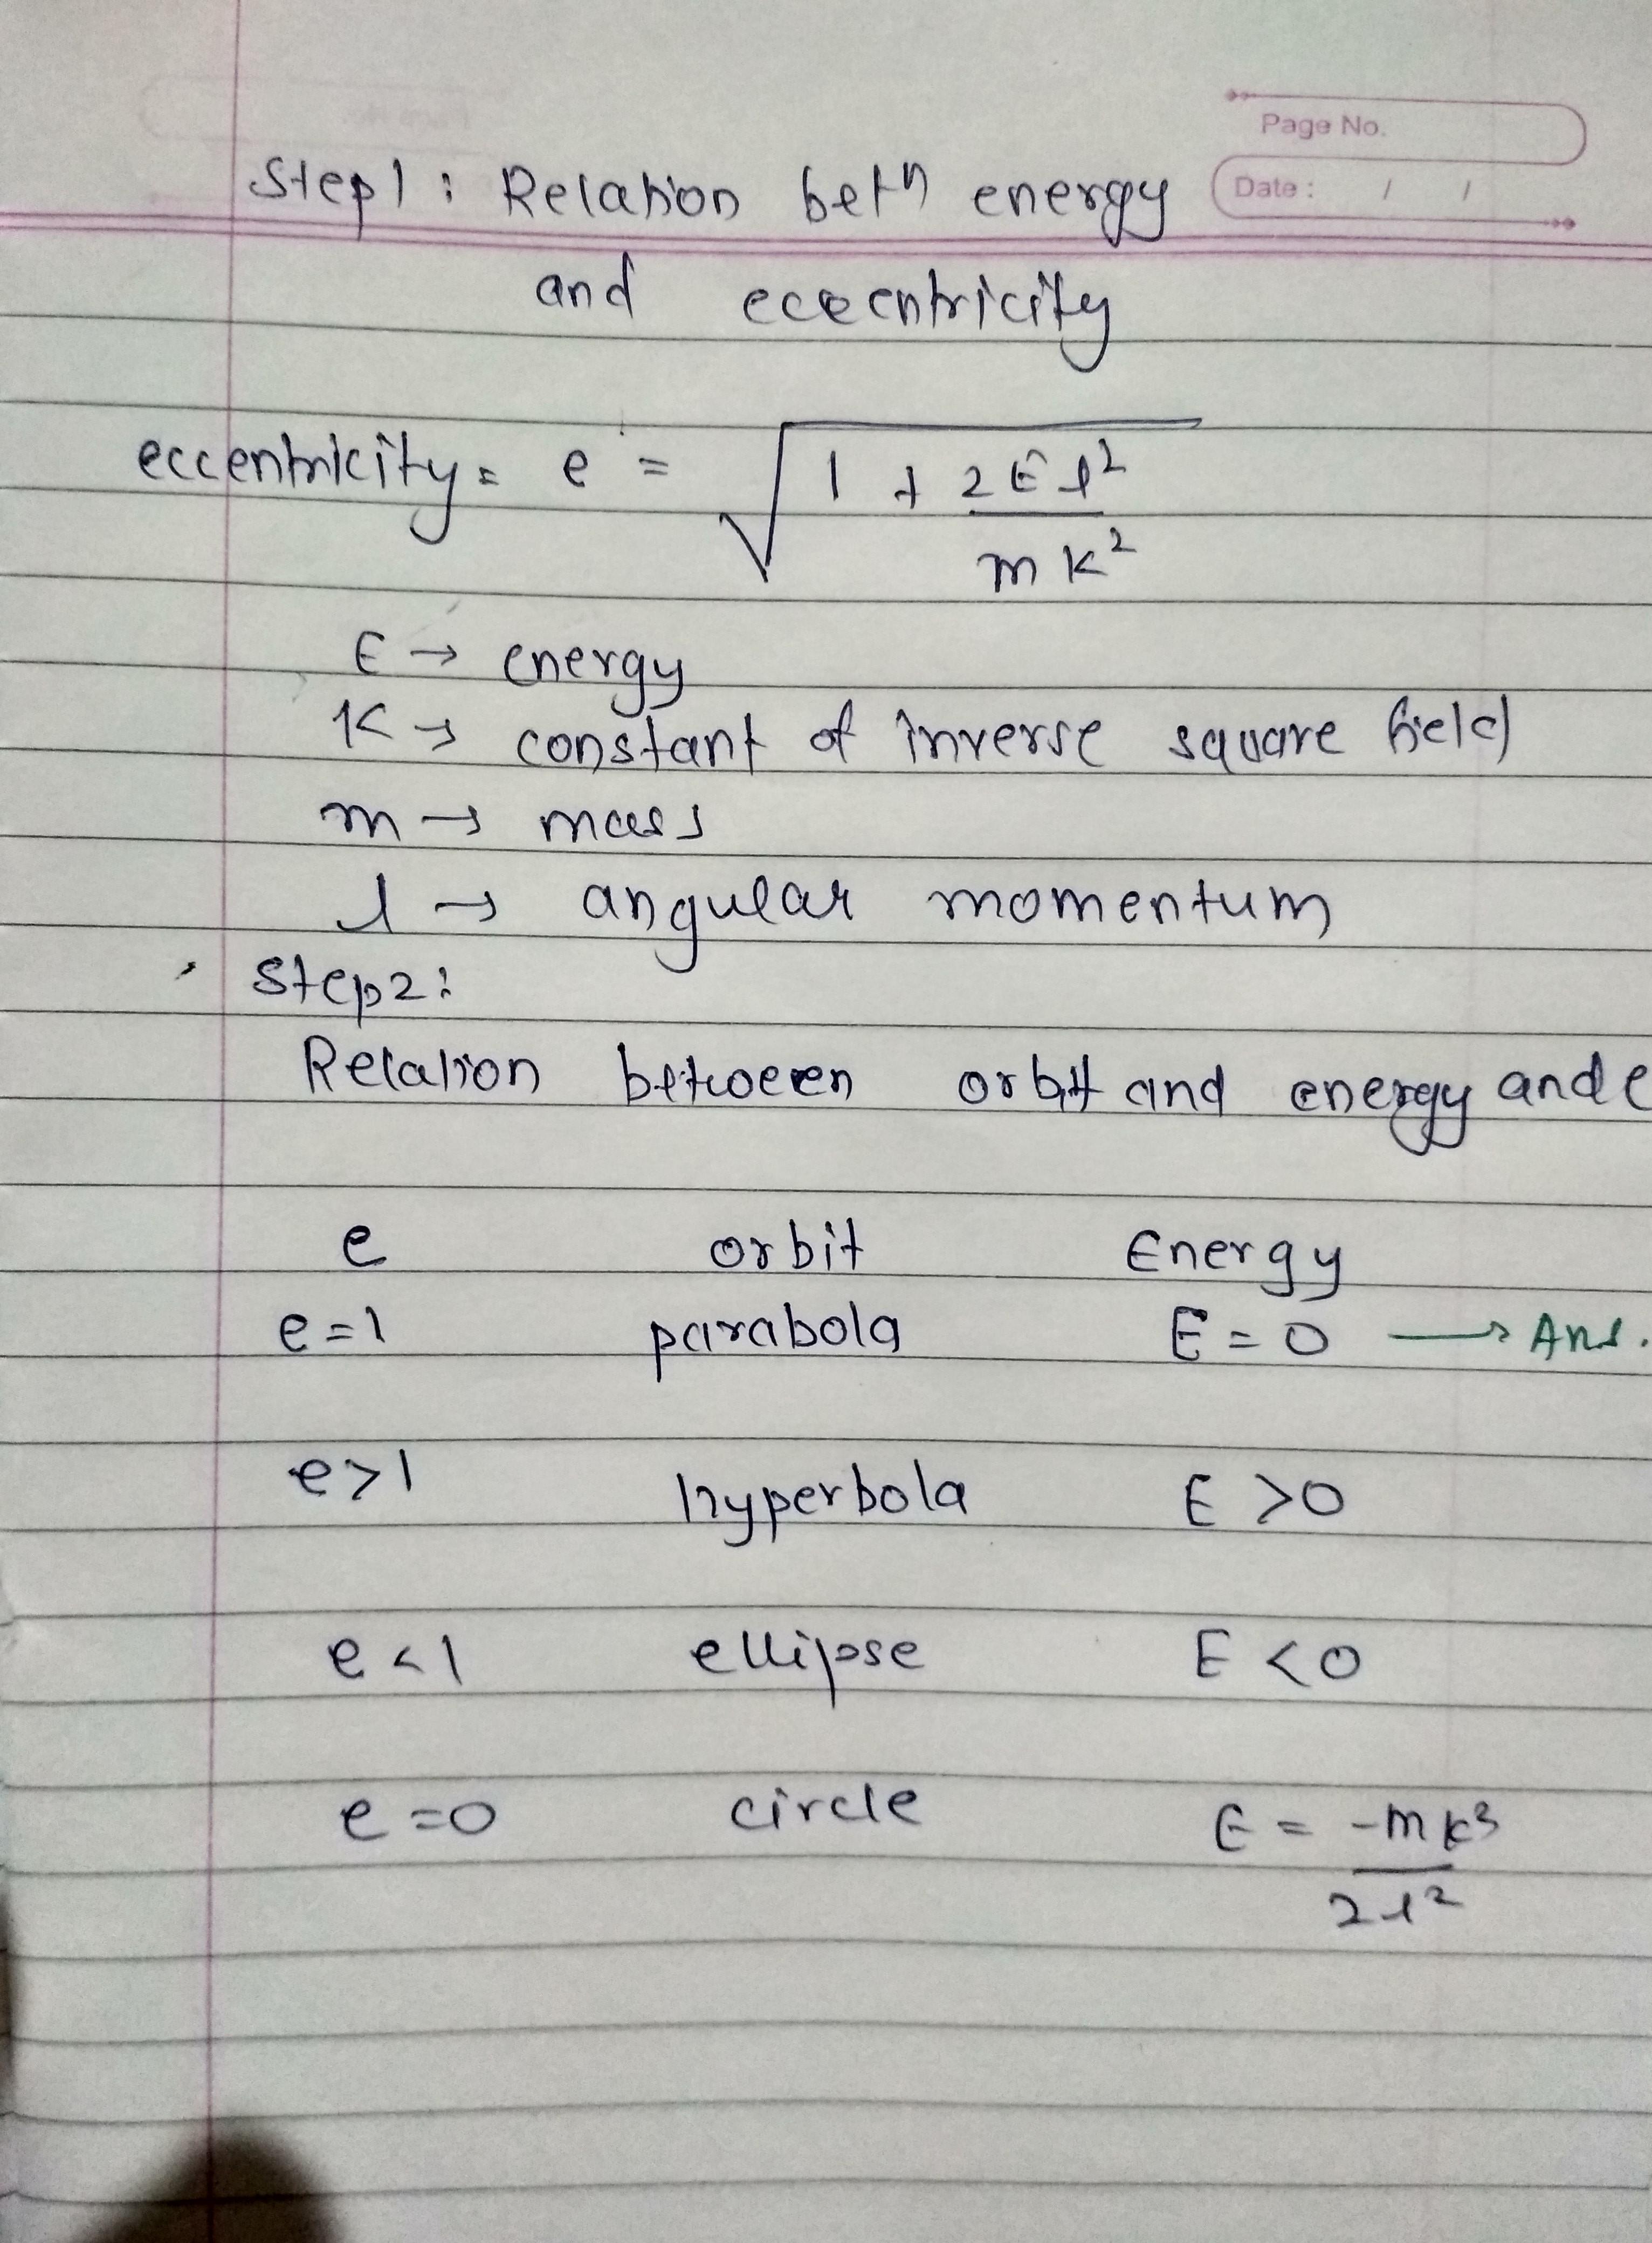 Page No.
Date : / /
Step1 : Relation betn energy
and eccentricity
eccentricity = e = √(1 + 2El²
mk²)
E → energy
K → constant of inverse square field
m → mass
l → angular momentum
Step2:
Relation between orbit and energy and e
e orbit Energy
e=1 parabola E = 0 → Ans.
e>1 hyperbola E >0
e<1 ellipse E <0
e=0 circle E = -mk³
2l²